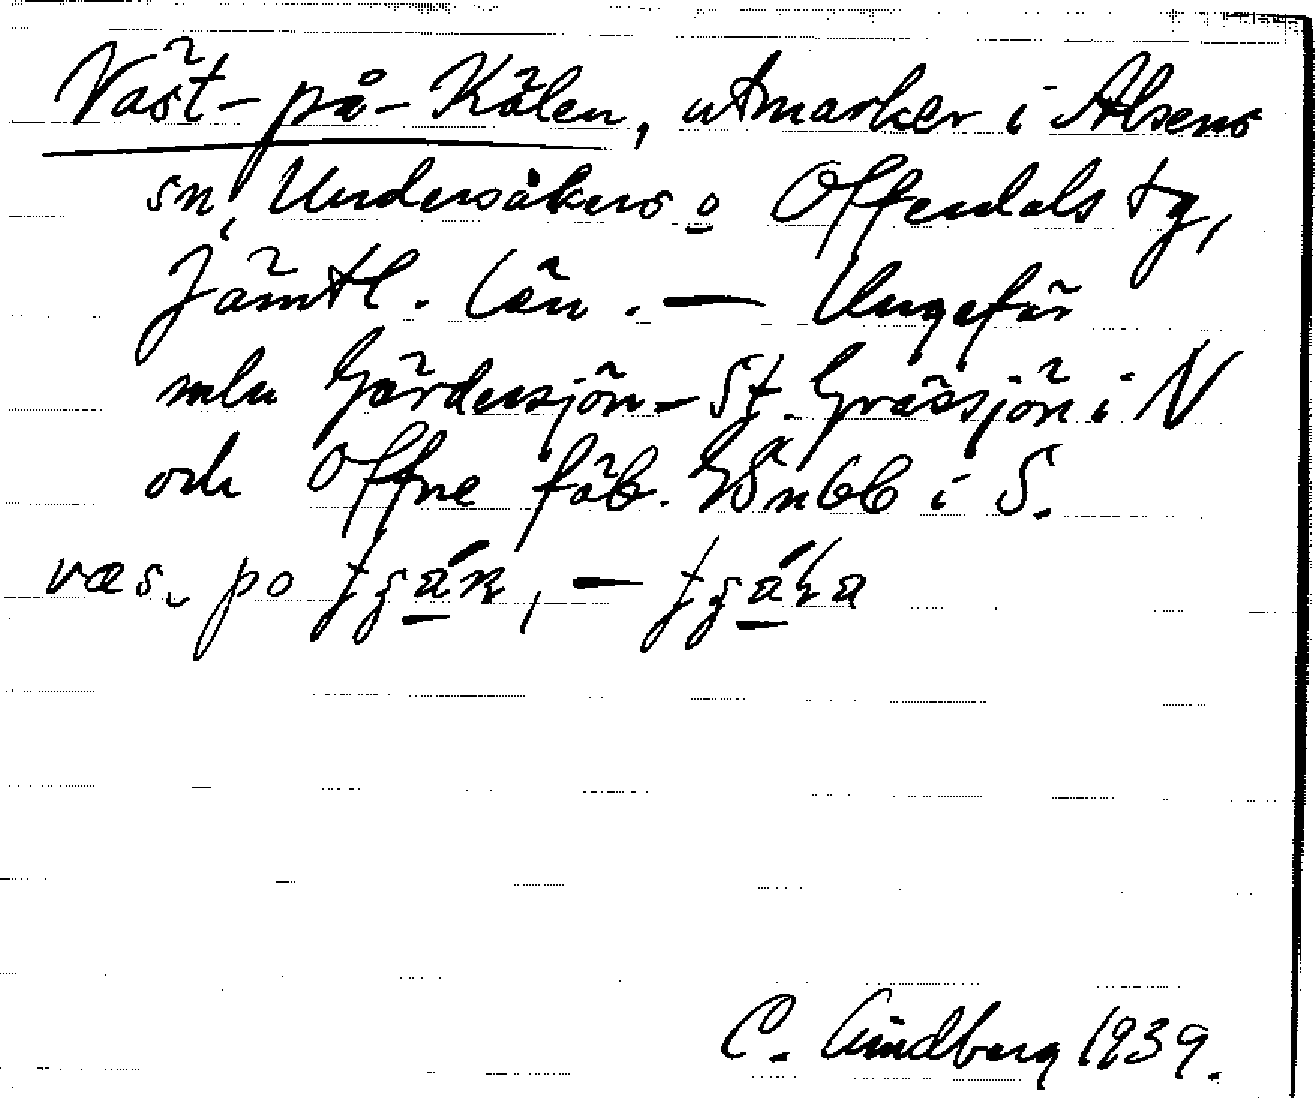 Väst-på-Kälen, utmarker i Alsens
sn, Undersåkers o Offerdals tg,
Jämtl. län. — Ungefär
mln Gärdesjön - St. Grässjön i N
och Offne fäb. i S.
væs. po
C. Lindberg 1939.